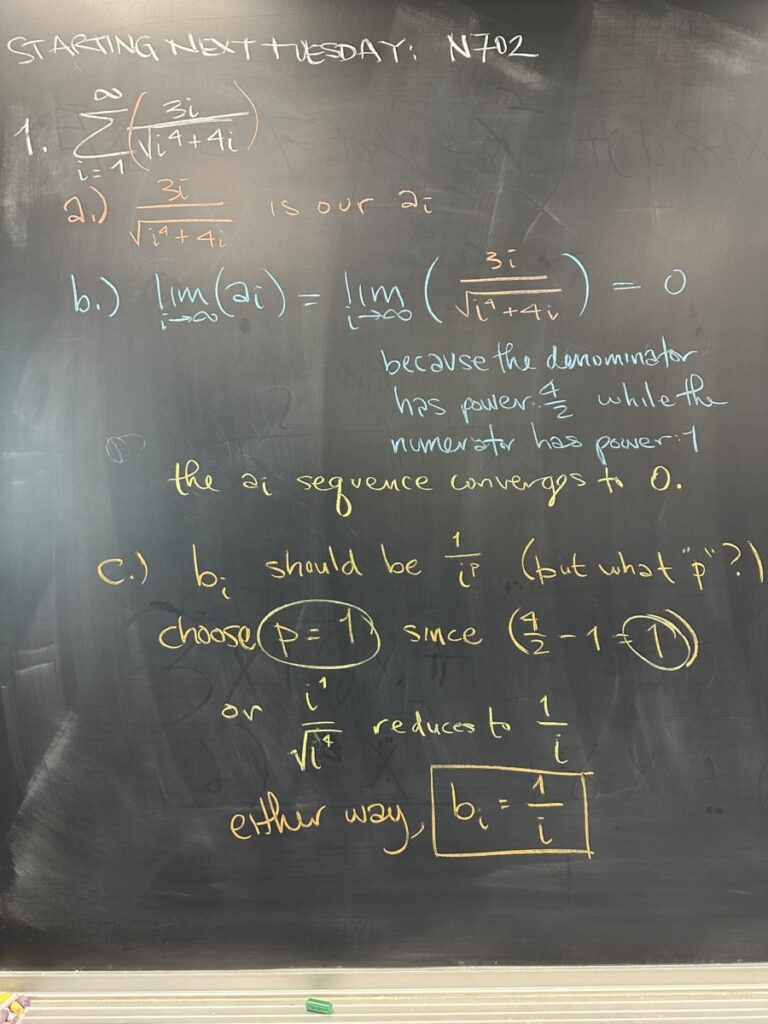 STARTING NEXT TUESDAY: N702
1. ∑_{i=1}^{∞} (3i/√(i⁴+4i))
a.) 3i/√(i⁴+4i) is our ai
b.) lim_{i→∞} (ai) = lim_{i→∞} (3i/√(i⁴+4i)) = 0
because the denominator
has power: 4/2 while the
numerator has power: 1
the ai sequence converges to 0.
c.) bi should be 1/i^p (but what "p"?)
choose p = 1 since (4/2 - 1 = 1)
or i¹/√i⁴ reduces to 1/i
either way, bi = 1/i